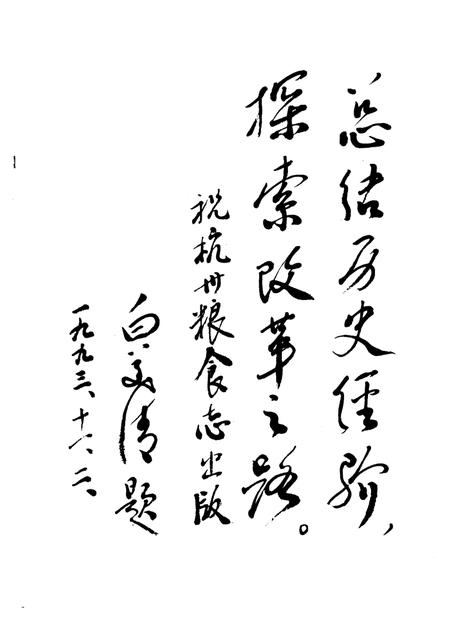 总结历史经验，
探索改革之路。
祝杭州粮食志出版
白美清题
一九九三、十一、二、